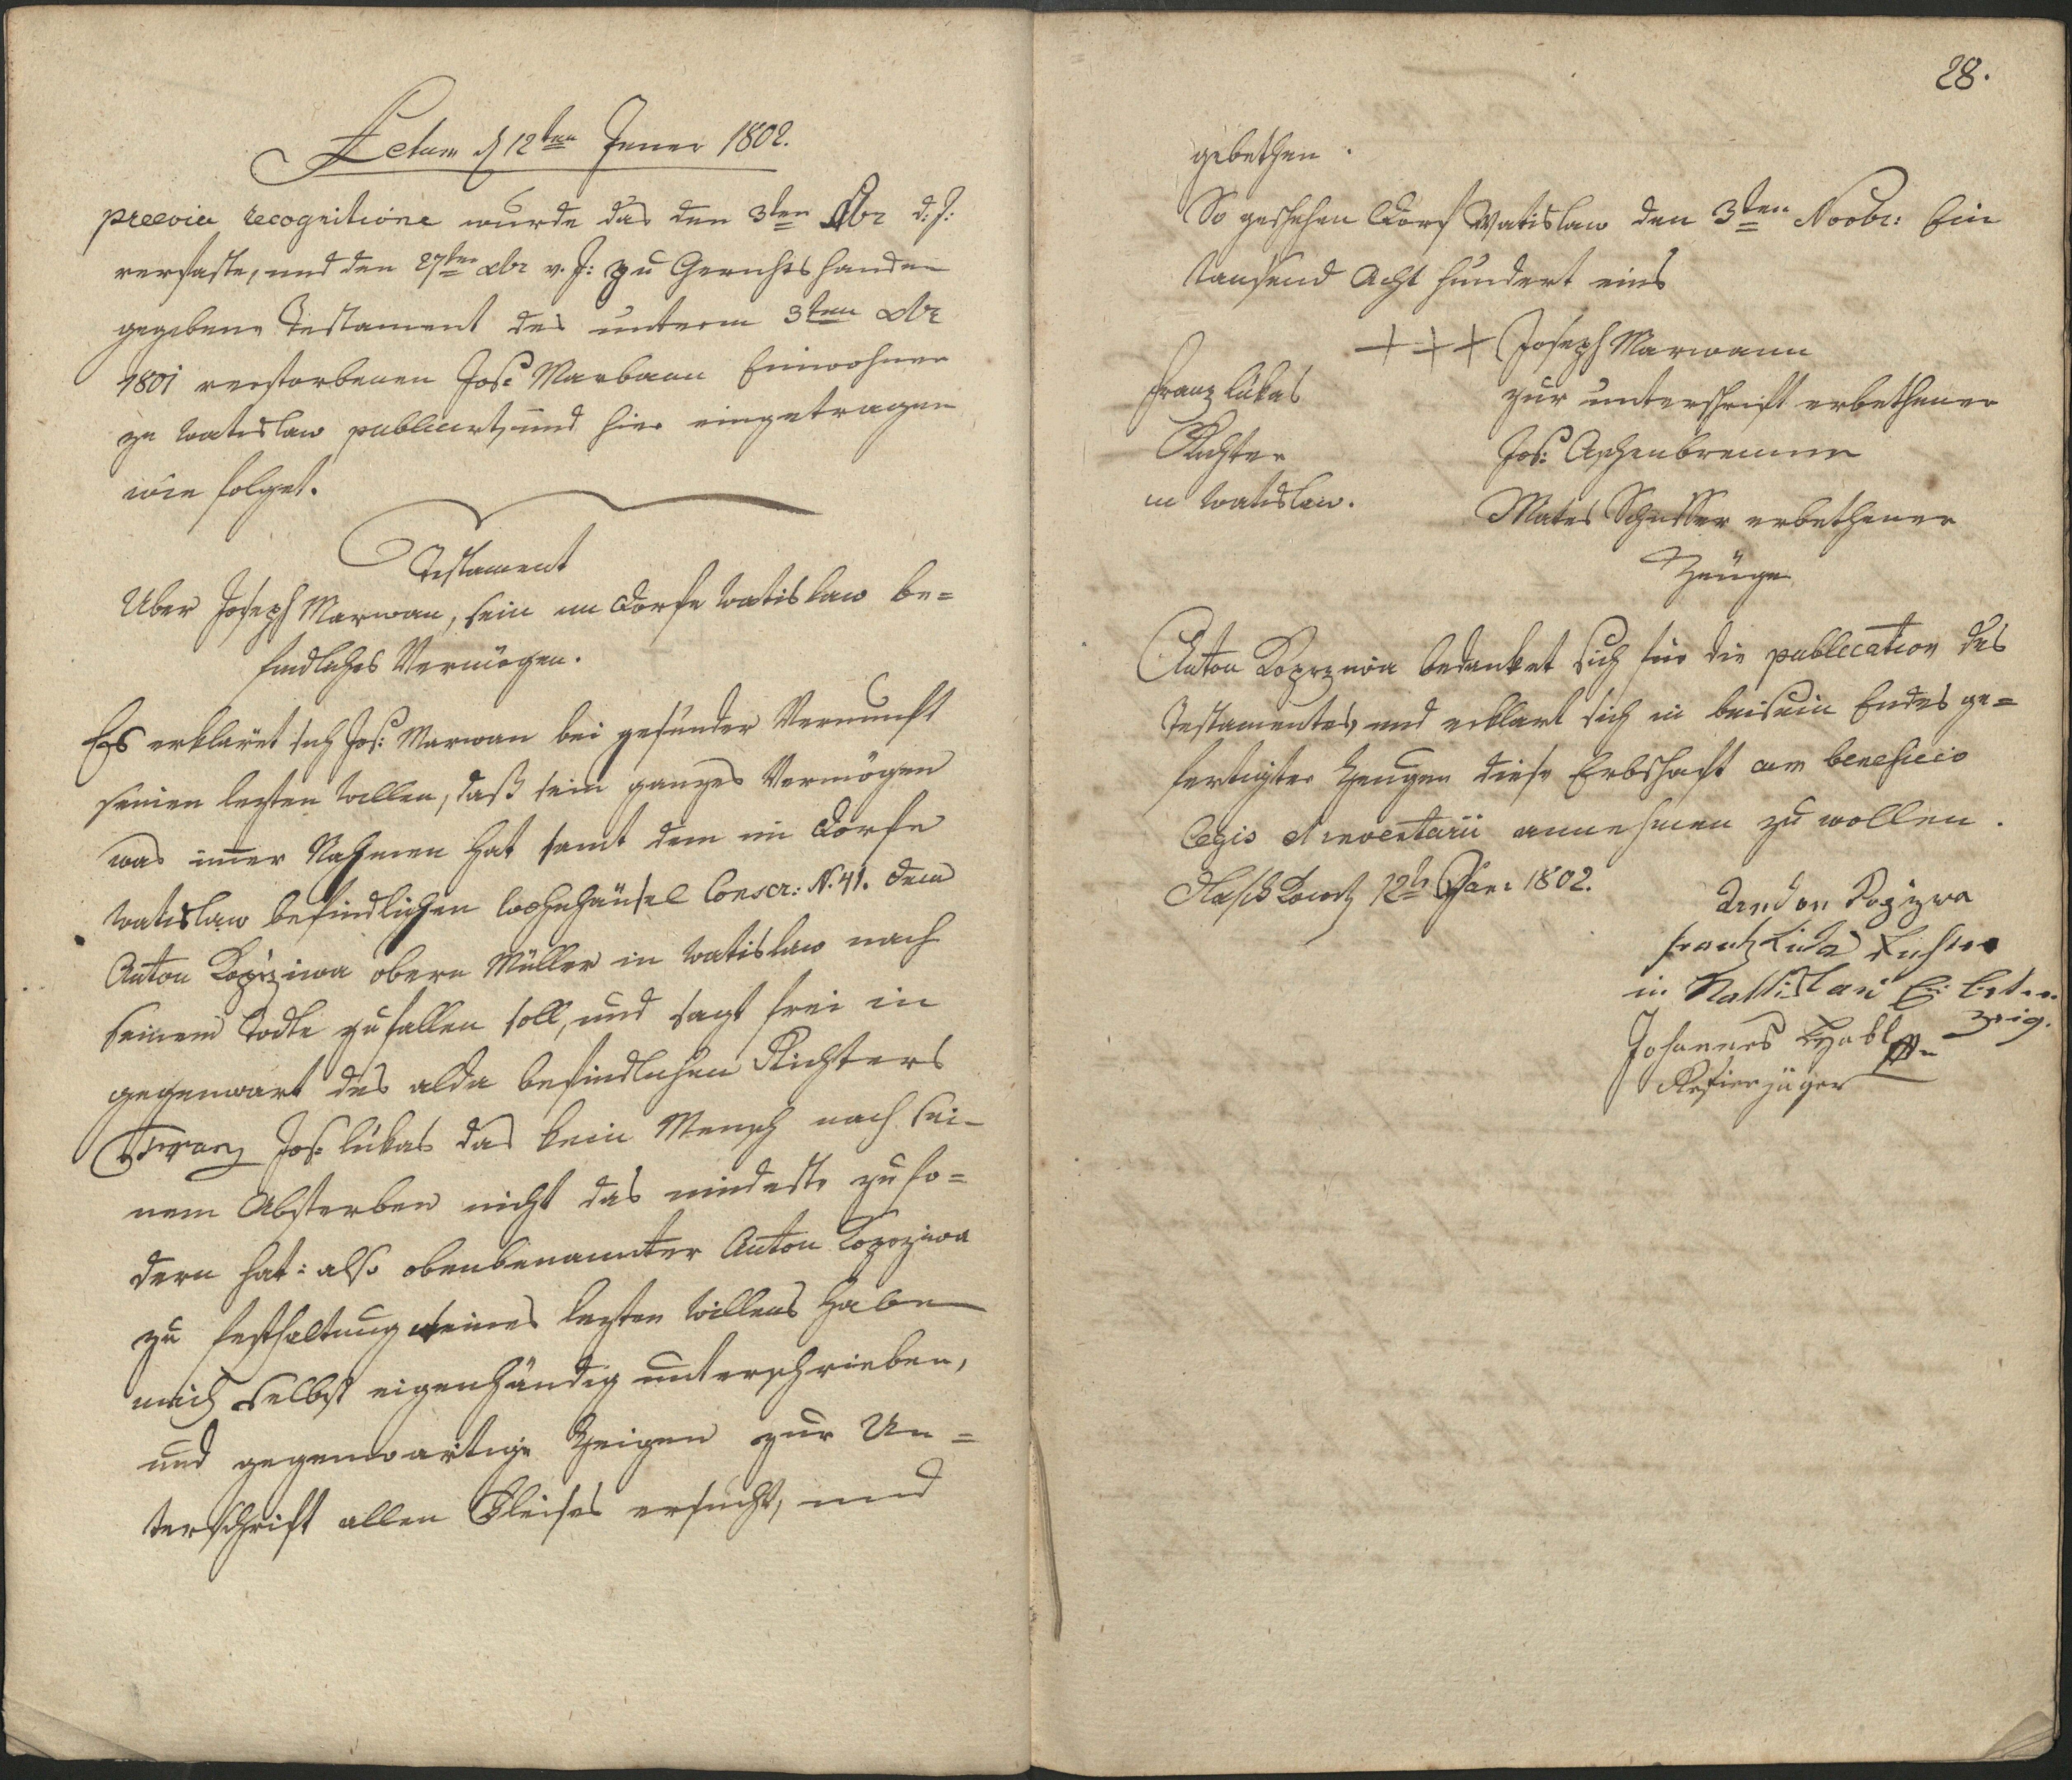 Actum d 12ten Jener 1802.
preevia recognitione wurde das den 3ten Xbr d: J:
verfaste, und den 27ten xbr v. J: zu Gerichtshanden
gegebene Testament des unterm 3ten xbr
1801 verstorbenen Jos: Marbann Einwohner
zu Watislaw publicirt, und hier eingetragen
wie folget.
Testament
Uber Joseph Marwan, sein im Dorfe Watislaw be=
findliches Vermögen.
Es erkläret sich Jos: Marwan bei gesunder Vernunft
seinen lezten Willen, daß sein ganzes Vermögen
was imer Nahmen hat samt dem im Dorfe
Watislaw befindlichen Wohnhäusel Conscr: N. 41. dem
Anton Kopržiwa obern Müller in Watislaw nach
seinem Todte zufallen soll, und sagt frei in
gegenwart des alda befindlichen Richters
Franz Jos: Lukas das kein Mensch nach sei-
nem Absterben nicht das mindeste zu fo=
dern hat: also obenbenannter Anton Kopržiwa
zu festhaltung meines lezten Willens habe
mich selbst eigenhändig unterschrieben,
und gegenwärtige Zeigen zur Un=
terschrift allen Fleises ersucht, und
28.
gebethen.
So geschehen Dorf Watislaw den 3ten Novbr: Ein
tausend Acht hundert eins
+++ Joseph Marwann
Franz Lukas
zur unterschrift erbethener
Richter
Jos: Aschenbrenner
in Watislaw.
Mates Schusser erbethener
Zeüge
Anton Koprzwia bedanket sich für die publication des
Testamentes, und erklärt sich in beisein Endes ge=
fertigter Zeugen diese Erbschaft cum beneficio
legis et inventarii annehmen zu wollen.
12t Jäner 1802.
Franz Lukas Richter
in
zeig.
Johannes
Refierjäger